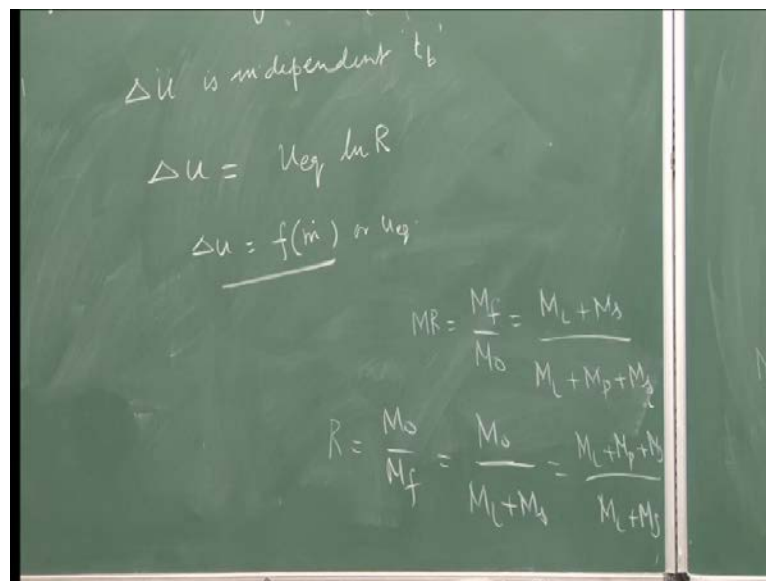 Δu is independent 't_b'
Δu = u_eq ln R
Δu = f(ṁ) or u_eq.
MR = M_f/M_0 = (M_L + M_s)/(M_L + M_p + M_s)
R = M_0/M_f = M_0/(M_L + M_s) = (M_L + M_p + M_s)/(M_L + M_s)